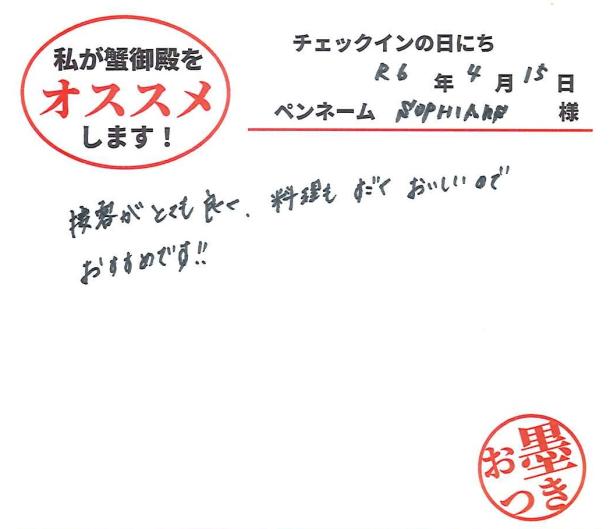 私が蟹御殿を
オススメ
します！
チェックインの日にち
R6 年 4 月 15 日
ペンネーム SOPHIANN 様
接客がとても良く、料理もすごくおいしいので
おすすめです!!
お墨
つき